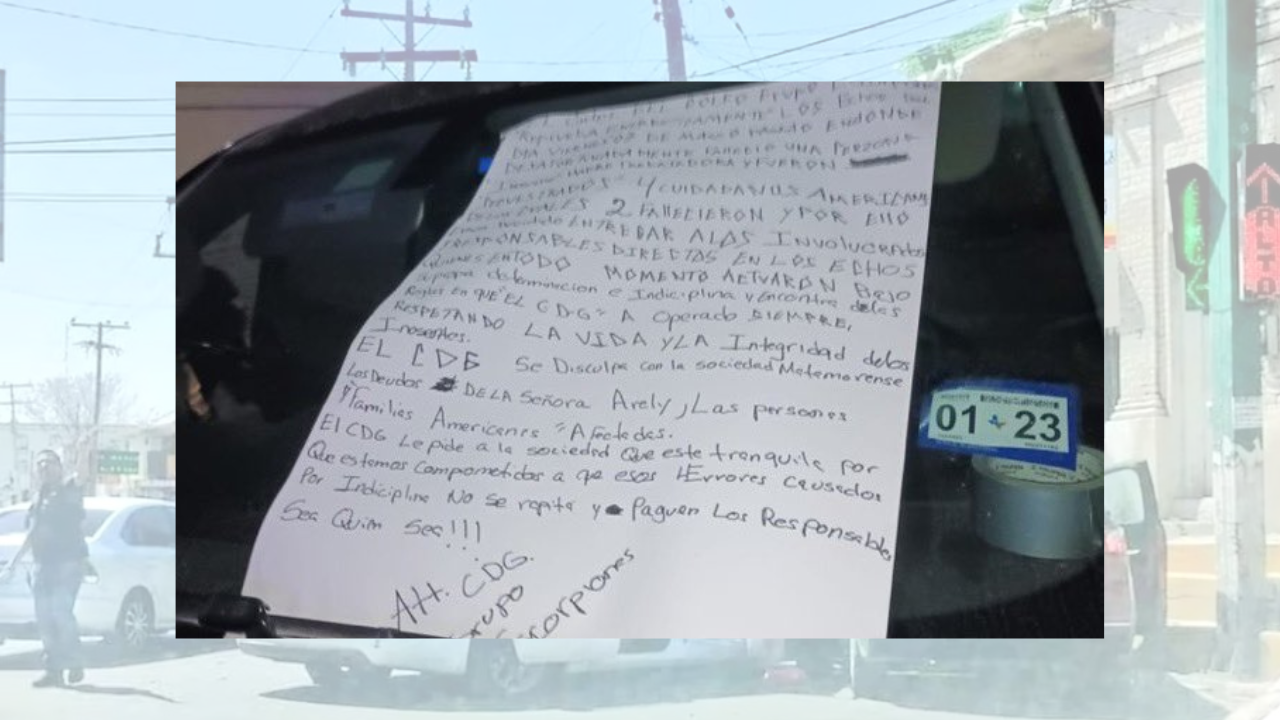 DEL GOLFO GRUPO
REPRUEBA ENERGICAMENTE LOS ECHOS DEL
DIA VIERNES 03 DE MARZO ENDONDE
DESAFORTUNADAMENTE FALLECIO UNA PERSONA
TRABAJADORA Y FUERON
4 CUIDADANOS AMERICANOS
2 FALLECIERON Y POR ELLO
ENTREGAR A LOS INVOLUCRADOS
RESPONSABLES DIRECTOS EN LOS ECHOS
QUIENES EN TODO MOMENTO ACTUARON BAJO
determinacion e Indiciplina y Encontra delas
Reglas En QUE "EL CDG" A Operado SIEMPRE,
RESPETANDO LA VIDA Y LA Integridad delos
Inosentes.
EL CDG Se Disculpa con la sociedad Matamorense
Los Deudos DE LA Señora Arely, Las personas
y Familias Americanas "Afectadas.
El CDG Le pide a la sociedad Que este tranquila por
Que estamos comprometidos a qe esos Errores causados
Por Indiciplina No se repita y Paguen Los Responsables,
Sea Quien Sea!!!
Att. CDG.
Grupo
Escorpiones
01 23